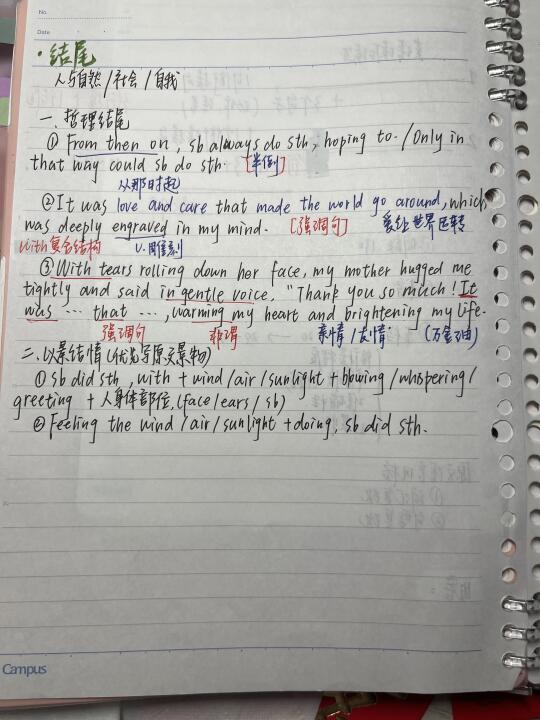 No.
Date
·结尾
人与自然/社会/自我
一、哲理结尾
① From then on, sb always do sth, hoping to. / Only in
that way could sb do sth. [半倒]
从那时起
② It was love and care that made the world go around, which
was deeply engraved in my mind. [强调句] 爱让世界运转
with复合结构 v.雕刻
③ With tears rolling down her face, my mother hugged me
tightly and said in gentle voice, "Thank you so much! It
was ... that ..., warming my heart and brightening my life.
强调句 非谓 亲情/友情 (万金油)
二、以景结情(优先写原文景物)
① sb did sth, with + wind/air/sunlight + blowing/whispering/
greeting + 人身体部位(face/ears/sb)
② Feeling the wind/air/sunlight + doing, sb did sth.
Campus